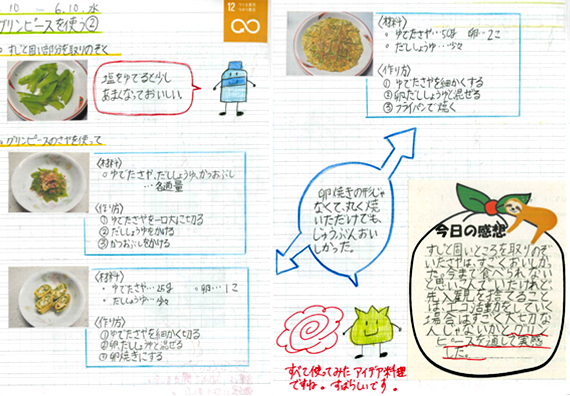 10 - 6.10.水
グリンピースを使う②
12
つくる責任
つかう責任
すじで固い部分を取りのぞく
塩をゆでるとき少し
あまくなっておいしい。
グリンピースのさやを使って
〈材料〉
ゆでたさや、だししょうゆ、かつおぶし
…各適量
〈作り方〉
①ゆでたさやを一口大に切る
②だししょうゆをかける
③かつおぶしをかける
〈材料〉
・ゆでたさや…25g ・卵…1コ
・だししょうゆ…少々
〈作り方〉
①ゆでたさやを細かく切る
②卵、だししょうゆと混ぜる
③卵焼きにする
〈材料〉
・ゆでたさや…50g 卵…2コ
・だししょうゆ…少々
〈作り方〉
①ゆでたさやを細かくする
②卵、だししょうゆと混ぜる
③フライパンで焼く
卵焼きの形じゃ
なくて、丸く焼
いただけでも、
じゅうぶんおい
しかった。
今日の感想
すじで固いところを取りのぞ
いたさやは、すごくおいしかっ
た。今まで食べられない
と思い込んでいたけれど、
先入観を捨てること
は、エコ活動をしてい
る場合は、すごく大切な
んじゃないかと、グリン
ピースを通して実感
した。
すべて使ってみたアイデア料理
ですね。すばらしいです。